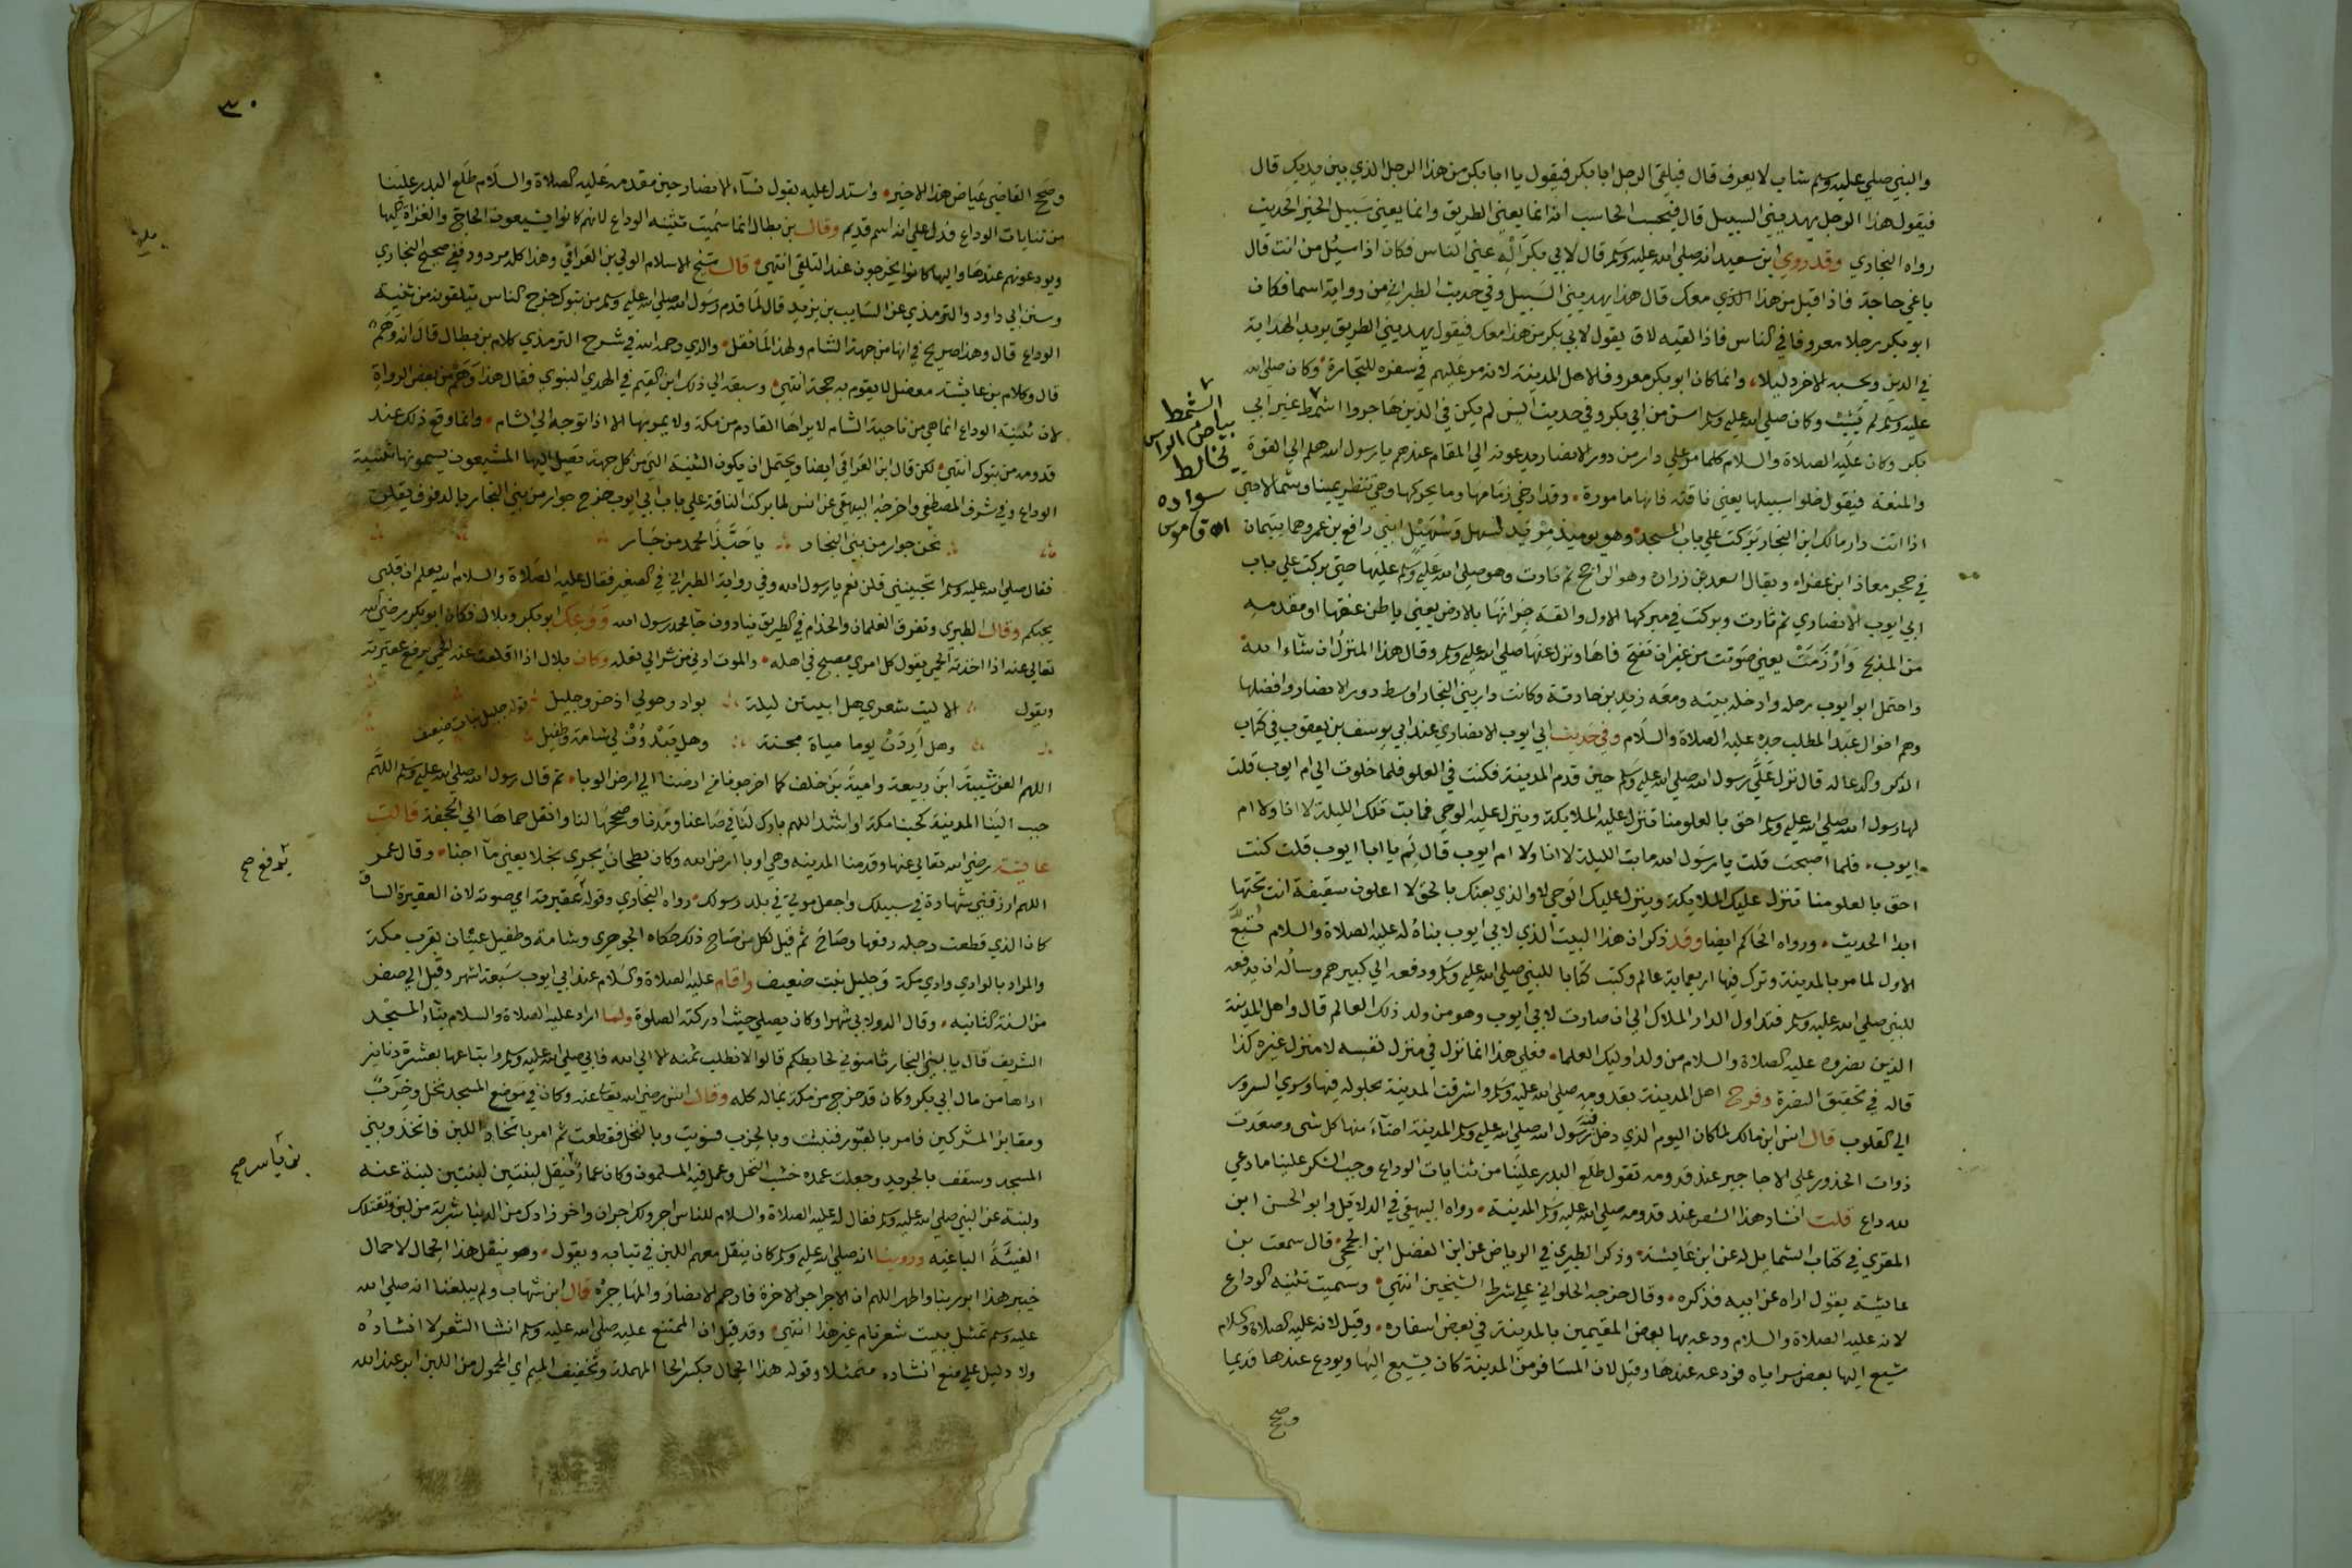 والنبي صلي عليه وسلم شاب لا يعرف قال فيلقي الرجل ابا بكر فيقول يا ابا بكر من هذا الرجل الذي بين يديك قال
فيقول هذا الرجل يهديني السبيل قال فيحسب الحاسب انه انما يعني الطريق وانما يعني سبيل الخير الحديث
رواه البخاري وقد روي ابن سعيد انه صلي الله عليه وسلم قال لابي بكر اله عني الناس فكان اذا سيل من انت قال
باغي حاجة فاذا قيل من هذا الذي معك قال هذا يهديني السبيل وفي حديث الطبراني من رواية اسما فكان
ابو بكر رجلا معروفا في الناس فاذا لقيه لاق يقول لابي بكر من هذا معك فيقول يهديني الطريق يريد الهداية
في الدين ويحسبه الاخر دليلا، وانما كان ابو بكر معروفا لاهل المدينة لانه مر عليهم في سفره للتجارة وكان صلي الله
عليه وسلم لم يشب وكان صلي الله عليه وسلم اسن من ابي بكر وفي حديث انس لم يكن في الذين هاجروا اشمط غير ابي
بكر وكان عليه الصلاة والسلام كلما مر علي دار من دور الانصار يدعونه الي المقام عندهم يا رسول الله هلم الي القوة
والمنعة فيقول خلوا سبيلها يعني ناقته فانها مامورة وقد ارخي زمامها وما يحركها وهي تنظر يمينا وشمالا حتي
اذا اتت دار مالك ابن النجار بركت علي باب المسجد وهو يوميذ مربد لسهل وسهيل ابني رافع بن عمرو وهما يتيمان
في حجر معاذ ابن عفراء ويقال اسعد بن زراره وهو الراجح ثم ثارت وهو صلي الله عليه وسلم عليها حتي بركت علي باب
ابي ايوب الانصاري ثم ثارت وبركت في مبركها الاول والقت جرانها بالارض يعني باطن عنقها او مقدمه
من المذبح وارزمت يعني صوتت من غير ان تفتح فاها ونزل عنها صلي الله عليه وسلم وقال هذا المنزل ان شاء الله
واحتمل ابو ايوب رحله وادخله بيته ومعه زيد بن حارثة وكانت دار بني النجار اوسط دور الانصار وافضلها
وهم اخوال عبد المطلب جده عليه الصلاة والسلام وفي حديث ابي ايوب الانصاري عند ابي يوسف بن يعقوب في كتاب
الذكر والدعا له قال نزل علي رسول الله صلي الله عليه وسلم حين قدم المدينة فكنت في العلو فلما خلوت الي ام ايوب قلت
لها رسول الله صلي الله عليه وسلم احق بالعلو منا تنزل عليه الملايكة وينزل عليه الوحي فما بت تلك الليلة لا انا ولا ام
ايوب فلما اصبحت قلت يا رسول الله ما بت الليلة لا انا ولا ام ايوب قال لم يا ابا ايوب قلت كنت
احق بالعلو منا تنزل عليك الملايكة وينزل عليك الوحي لا والذي بعثك بالحق لا اعلون سقيفة انت تحتها
ابدا الحديث ورواه الحاكم ايضا وقد ذكر ان هذا البيت الذي لابي ايوب بناه له عليه الصلاة والسلام تبع
الاول لما مر بالمدينة وترك فيها اربعماية عالم وكتب كتابا للنبي صلي الله عليه وسلم ودفعه الي كبيرهم وساله ان يدفعه
للنبي صلي الله عليه وسلم فتداول الدار الملاك الي ان صارت لابي ايوب وهو من ولد ذلك العالم قال واهل المدينة
الذين نصروه عليه الصلاة والسلام من ولد اوليك العلما، فعلي هذا انما نزل في منزل نفسه لا منزل غيره كذا
قاله في تحقيق النصرة وفرح اهل المدينة بقدومه صلي الله عليه وسلم واشرقت المدينة بحلوله فيها وسري السرور
الي القلوب قال انس ابن مالك لما كان اليوم الذي دخل فيه رسول الله صلي الله عليه وسلم المدينة اضاء منها كل شي وصعدت
ذوات الخدور علي الاجاجير عند قدومه تقول طلع البدر علينا من ثنايات الوداع وجب الشكر علينا ما دعي
لله داع قلت انشاد هذا الشعر عند قدومه صلي الله عليه وسلم المدينة رواه البيهقي في الدلايل وابو الحسن ابن
المقري في كتاب الشمايل له عن ابن عايشة وذكر الطبري في الرياض عن ابن الفضل ابن الجمحي قال سمعت بن
عايشة يقول اراه عن ابيه فذكره وقال خرجه الحلواني علي شرط الشيخين انتهي وسميت ثنية الوداع
لانه عليه الصلاة والسلام ودعه بها بعض المقيمين بالمدينة في بعض اسفاره وقيل لانه عليه الصلاة والسلام
شيع اليها بعض سراياه فودعه عندها وقيل لان المسافر من المدينة كان يشيع اليها ويودع عندها قديما
وصح
الشمط
بياض الراس
يخالط
سواده
اه قاموس
٣٠
وصح القاضي عياض هذا الاخير واستدل عليه بقول نساء الانصار حين مقدمه عليه الصلاة والسلام طلع البدر علينا
من ثنايات الوداع فدل علي انه اسم قديم وقال بن بطال انما سميت ثنية الوداع لانهم كانوا يشيعون الحاج والغزاة اليها
ويودعونهم عندها واليها كانوا يخرجون عند التلقي انتهي قال شيخ الاسلام الولي بن العراقي وهذا كله مردود ففي صحيح البخاري
وسنن ابي داود والترمذي عن السايب بن يزيد قال لما قدم رسول الله صلي الله عليه وسلم من تبوك خرج الناس يتلقونه من ثنية
الوداع قال وهذا صريح في انها من جهة الشام ولهذا لما نقل والدي رحمه الله في شرح الترمذي كلام بن بطال قال انه وهم
قال وكلام بن عايشة معضل لا يقوم به حجة انتهي وسبقه الي ذلك ابن القيم في الهدي النبوي فقال هذا وهم من بعض الرواة
لان ثنية الوداع انما هي من ناحية الشام لا يراها القادم من مكة ولا يمر بها الا اذا توجه الي الشام وانما وقع ذلك عند
قدومه من تبوك انتهي لكن قال ابن العراقي ايضا ويحتمل ان يكون الثنية التي من كل جهة تصل اليها المشيعون يسمونها بثنية
الوداع وفي شرف المصطفي واخرجه البيهقي عن انس لما بركت الناقة علي باب ابي ايوب خرج جوار من بني النجار بالدفوف يقلن
نحن جوار من بني النجار يا حبذا محمد من جار
فقال صلي الله عليه وسلم اتحببنني قلن نعم يا رسول الله وفي رواية الطبراني في الصغير فقال عليه الصلاة والسلام الله يعلم ان قلبي
يحبكم وقال الطبري وتفرق الغلمان والخدام في الطريق ينادون جا محمد رسول الله ووعك ابو بكر وبلال فكان ابو بكر رضي الله
تعالي عنه اذا اخذته الحمي يقول كل امري مصبح في اهله والموت ادني من شراك نعله وكان بلال اذا اقلعت عنه الحمي يرفع عقيرته
ويقول الا ليت شعري هل ابيتن ليلة بواد وحولي اذخر وجليل قوله جليل نبات ضعيف
وهل اردن يوما مياة مجنة وهل يبدون لي شامة وطفيل
اللهم العن شيبة ابن ربيعة وامية بن خلف كما اخرجونا من ارضنا الي ارض الوبا ثم قال رسول الله صلي الله عليه وسلم اللهم
حبب الينا المدينة كحبنا مكة او اشد اللهم بارك لنا في صاعنا ومدنا وصححها لنا وانقل حماها الي الجحفة قالت
عايشة رضي الله تعالي عنها وقدمنا المدينة وهي اوبا ارض الله وكان بطحان يجري نجلا يعني ما اجنا وقال عمر
اللهم ارزقني شهادة في سبيلك واجعل موتي في بلد رسولك رواه البخاري وقوله عقيرته اي صوته لان العقيرة الساق
كان الذي قطعت رجله رفعها وصاح ثم قيل لكل من صاح ذلك حكاه الجوهري وشامة وطفيل عينان بقرب مكة
والمراد بالوادي وادي مكة وجليل نبت ضعيف واقام عليه الصلاة والسلام عند ابي ايوب سبعة اشهر وقيل الي صفر
من السنة الثانيه وقال الدولابي شهرا وكان يصلي حيث ادركته الصلوة ولما اراد عليه الصلاة والسلام بناء المسجد
الشريف قال يا بني النجار ثامنوني لحايطكم قالوا لا نطلب ثمنه الا الي الله فابي صلي الله عليه وسلم وابتاعها بعشرة دنانير
اداها من مال ابي بكر وكان قد خرج من مكة بماله كله وقال انس رضي الله تعالي عنه وكان في موضع المسجد نخل وخرب
ومقابر المشركين فامر بالقبور فنبشت وبالخرب فسويت وبالنخل فقطعت ثم امر باتخاذ اللبن فاتخذ وبني
المسجد وسقف بالجريد وجعلت عمده خشب النخل وعمل فيه المسلمون وكان عمار ينقل لبنتين لبنتين لبنة عنه
ولبنة عن النبي صلي الله عليه وسلم فقال له عليه الصلاة والسلام للناس اجر ولك اجران واخر زادك من الدنيا شربة من لبن وتقتلك
الفئة الباغيه وروينا انه صلي الله عليه وسلم كان ينقل معهم اللبن في ثيابه ويقول وهو ينقل هذا الحمال لا حمال
خيبر هذا ابر ربنا واطهر اللهم ان الاجر اجر الاخرة فارحم الانصار والمهاجره قال ابن شهاب ولم يبلغنا انه صلي الله
عليه وسلم تمثل ببيت شعر تام غير هذا انتهي وقد قيل ان الممتنع عليه صلي الله عليه وسلم انشا الشعر لا انشاده
ولا دليل علي منع انشاده متمثلا وقوله هذا الحمال بكسر الحا المهملة وتخفيف الميم اي المحمول من اللبن ابر عند الله
يرفع صح
بن ياسر صح